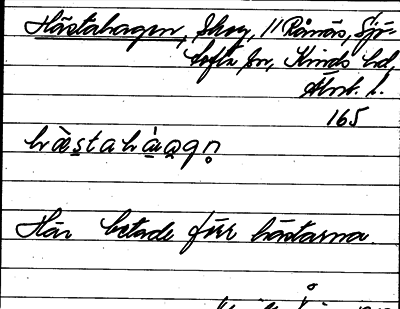 Hästahagen, Skog, 11 Rånäs, Sjö-
tofta sn, Kinds hd,
Älvsb. l.
165
hästahàagn
Här betade förr hästarna.